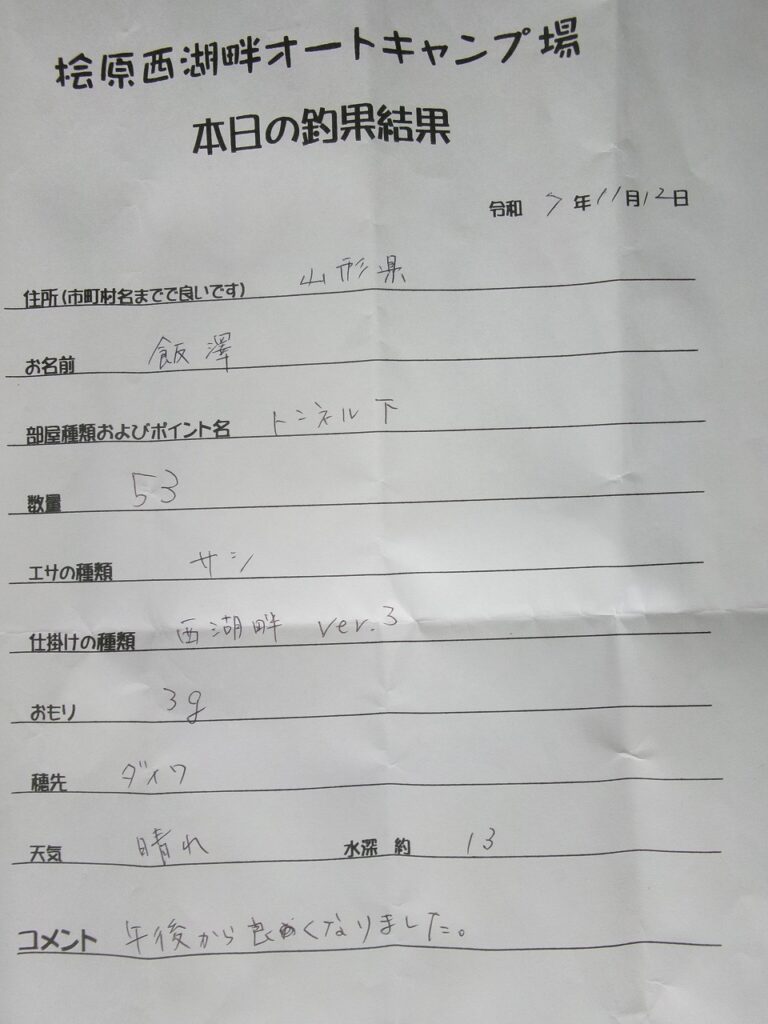 桧原西湖畔オートキャンプ場
本日の釣果結果
令和 7年11月12日
住所(市町村名までで良いです) 山形県
お名前 飯澤
部屋種類およびポイント名 トンネル下
数量 53
エサの種類 サシ
仕掛けの種類 西湖畔 ver.3
おもり 3g
穂先 ダイワ
天気 晴れ 水深 約 13
コメント 午後から良くなりました。